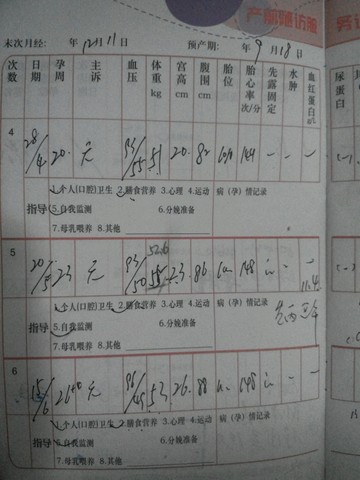 产前随访服
末次月经: 年12月11日 预产期: 年9月18日
次数 日期 孕周 主诉 血压 体重kg 宫高cm 腹围cm 胎位 胎心率次/分 先露固定 水肿 血红蛋白 尿蛋白
4 28/4 20 无 93/55 51 20 82 144 — —
指导 1.个人(口腔)卫生 2.膳食营养 3.心理 4.运动 病(孕)情记录
5.自我监测 6.分娩准备
7.母乳喂养 8.其他
5 20/5 23 无 93/50 52.6 23 86 148 — 11.4
指导 1.个人(口腔)卫生 2.膳食营养 3.心理 4.运动 病(孕)情记录
5.自我监测 6.分娩准备
7.母乳喂养 8.其他
6 15/6 26+ 无 53 26 88 148 — —
指导 1.个人(口腔)卫生 2.膳食营养 3.心理 4.运动 病(孕)情记录
5.自我监测 6.分娩准备
7.母乳喂养 8.其他